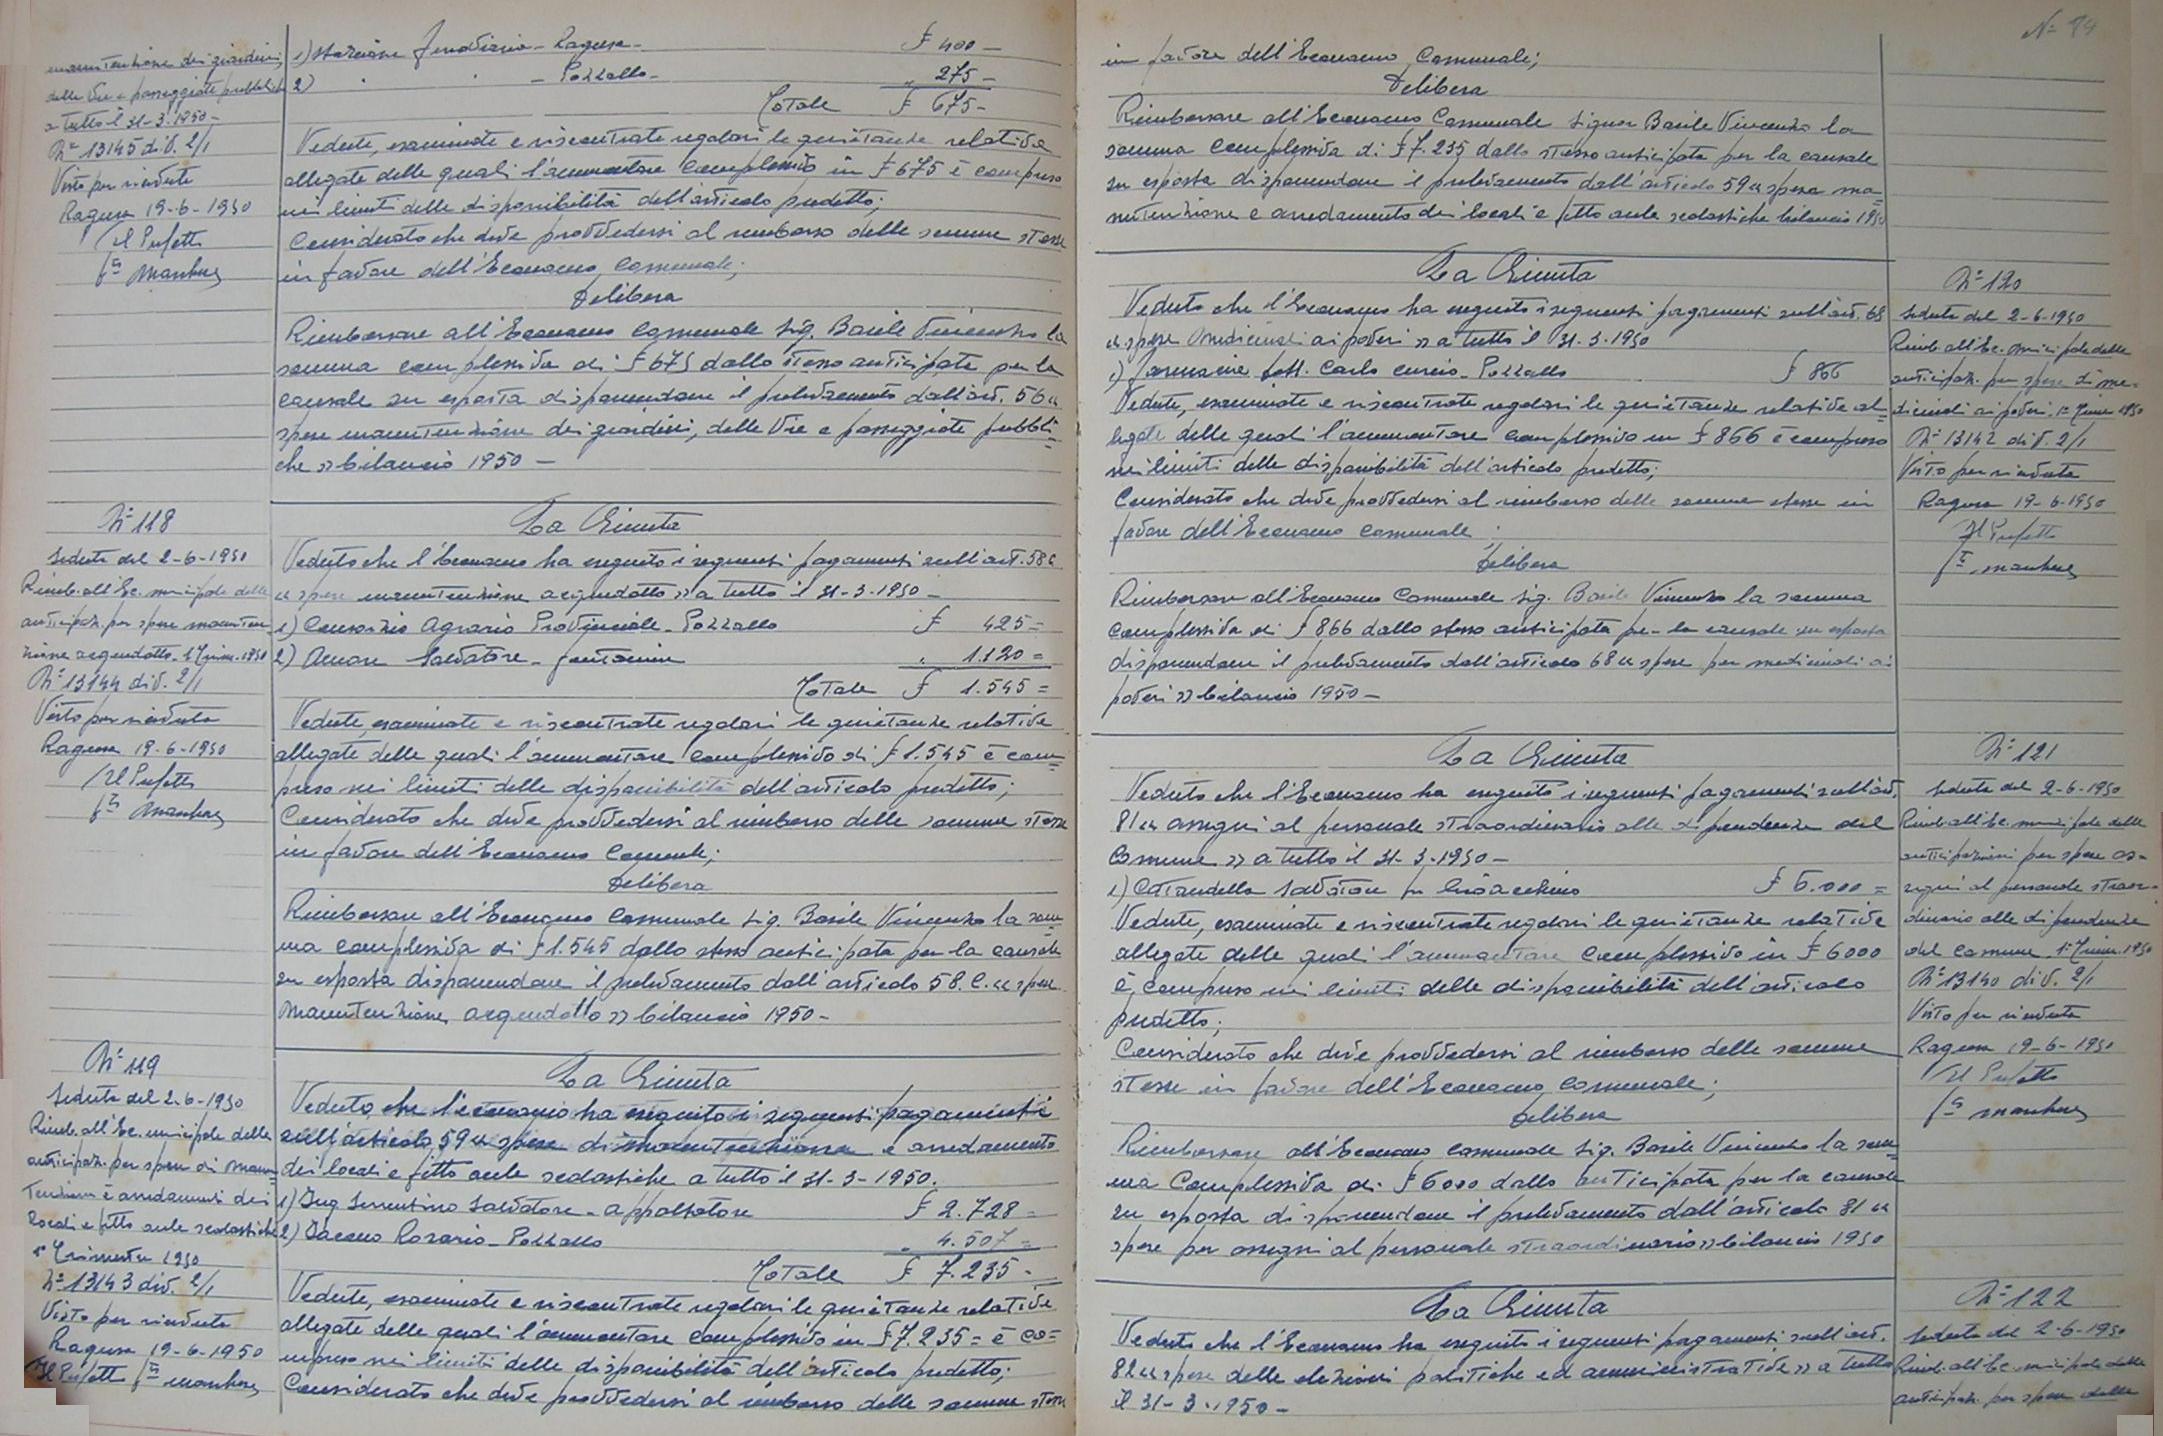 manutenzione dei giardini,
delle Vie e passeggiate pubbliche
a tutto il 31-3-1950-
N° 13145 div. 2/1
Visto per ricevuta
Ragusa 19-6-1950
Il Prefetto
1) Stazione ferroviaria - Ragusa - £ 400 -
2) " " - Pozzallo - " 275 -
Totale £ 675 -
Vedute, esaminate e riscontrate regolari le quietanze relative
allegate delle quali l'ammontare complessivo in £ 675 è compreso
nei limiti delle disponibilità dell'articolo predetto;
Considerato che deve provvedersi al rimborso delle somme stesse
in favore dell'Economo Comunale;
Delibera
Rimborsare all'Economo Comunale Sig. Basile Vincenzo la
somma complessiva di £ 675 dallo stesso anticipata per la
causale su esposta disponendone il prelevamento dall'art. 56 «
spese manutenzione dei giardini, delle Vie e passeggiate pubbli=
che » bilancio 1950 -
N° 118
Seduta del 2-6-1950
Rimb. all'Ec. municipale delle
anticipaz. per spese manuten=
zione acquedotto - 1° Trim. 1950
N° 13144 div. 2/1
Visto per ricevuta
Ragusa 19-6-1950
Il Prefetto
La Giunta
Veduto che l'Economo ha eseguito i seguenti pagamenti sull'art. 58 «
« spese manutenzione acquedotto » a tutto il 31-3-1950 -
1) Consorzio Agrario Provinciale - Pozzallo £ 425=
2) Amore Salvatore - fontaniere " 1.120=
Totale £ 1.545=
Vedute, esaminate e riscontrate regolari le quietanze relative
allegate delle quali l'ammontare complessivo di £ 1.545 è com=
preso nei limiti delle disponibilità dell'articolo predetto;
Considerato che deve provvedersi al rimborso delle somme stesse
in favore dell'Economo Comunale;
Delibera
Rimborsare all'Economo Comunale Sig. Basile Vincenzo la som=
ma complessiva di £ 1.545 dallo stesso anticipata per la causale
su esposta disponendone il prelevamento dall'articolo 58. C. « spese
manutenzione acquedotto » bilancio 1950 -
N° 119
Seduta del 2-6-1950
Rimb. all'Ec. municipale delle
anticipaz. per spese di manu=
tenzione e arredamenti dei
locali e fitto aule scolastiche
1° Trimestre 1950
N° 13143 div. 2/1
Visto per ricevuta
Ragusa 19-6-1950
Il Prefetto
La Giunta
Veduto che l'economo ha eseguito i seguenti pagamenti
sull'articolo 59 « spese di manutenzione e arredamento
dei locali e fitto aule scolastiche a tutto il 31-3-1950.
1) Ing Sorrentino Salvatore - appaltatore £ 2.728=
2) Iacono Rosario - Pozzallo " 4.507=
Totale £ 7.235 -
Vedute, esaminate e riscontrate regolari le quietanze relative
allegate delle quali l'ammontare complessivo in £ 7.235= è co=
mpreso nei limiti delle disponibilità dell'articolo predetto;
Considerato che deve provvedersi al rimborso delle somme stesse
in favore dell'Economo Comunale;
Delibera
Rimborsare all'Economo Comunale Signor Basile Vincenzo la
somma complessiva di £ 7.235 dallo stesso anticipata per la causale
su esposta disponendone il prelevamento dall'articolo 59 « spesa ma=
nutenzione e arredamento dei locali e fitto aule scolastiche bilancio 1950
La Giunta
Veduto che l'Economo ha eseguito i seguenti pagamenti sull'art. 68
« spese medicinali ai poveri » a tutto il 31-3-1950
1) farmacia dott. Carlo Curcio - Pozzallo £ 866
Vedute, esaminate e riscontrate regolari le quietanze relative al=
legate delle quali l'ammontare complessivo in £ 866 è compreso
nei limiti delle disponibilità dell'articolo predetto;
Considerato che deve provvedersi al rimborso delle somme stesse in
favore dell'Economo Comunale;
Delibera
Rimborsare all'Economo Comunale Sig. Basile Vincenzo la somma
complessiva di £ 866 dallo stesso anticipata per la causale su esposta
disponendone il prelevamento dall'articolo 68 « spese per medicinali ai
poveri » bilancio 1950 -
N° 120
Seduta del 2-6-1950
Rimb. all'Ec. municipale delle
anticipaz. per spese di me=
dicinali ai poveri. 1° Trim. 1950
N° 13142 div. 2/1
Visto per ricevuta
Ragusa 19-6-1950
Il Prefetto
La Giunta
Veduto che l'Economo ha eseguito i seguenti pagamenti sull'art.
81 « assegni al personale straordinario alle dipendenze del
Comune » a tutto il 31-3-1950 -
1) Cataudella Salvatore fu Gioacchino £ 6.000=
Vedute, esaminate e riscontrate regolari le quietanze relative
allegate delle quali l'ammontare complessivo in £ 6000
è compreso nei limiti delle disponibilità dell'articolo
predetto;
Considerato che deve provvedersi al rimborso delle somme
stesse in favore dell'Economo Comunale;
Delibera
Rimborsare all'Economo Comunale Sig. Basile Vincenzo la som=
ma Complessiva di £ 6000 dallo anticipata per la causale
su esposta disponendone il prelevamento dall'articolo 81 «
spese per assegni al personale straordinario » bilancio 1950
N° 121
Seduta del 2-6-1950
Rimb. all'Ec. municipale delle
anticipazioni per spese as=
segni al personale straor=
dinario alle dipendenze
del Comune. 1° Trim. 1950
N° 13140 div. 2/1
Visto per ricevuta
Ragusa 19-6-1950
Il Prefetto
La Giunta
Veduto che l'Economo ha eseguito i seguenti pagamenti sull'art.
82 « spese delle elezioni politiche ed amministrative » a tutto
il 31-3-1950 -
N° 122
Seduta del 2-6-1950
Rimb. all'Ec. municipale delle
anticipaz. per spese delle